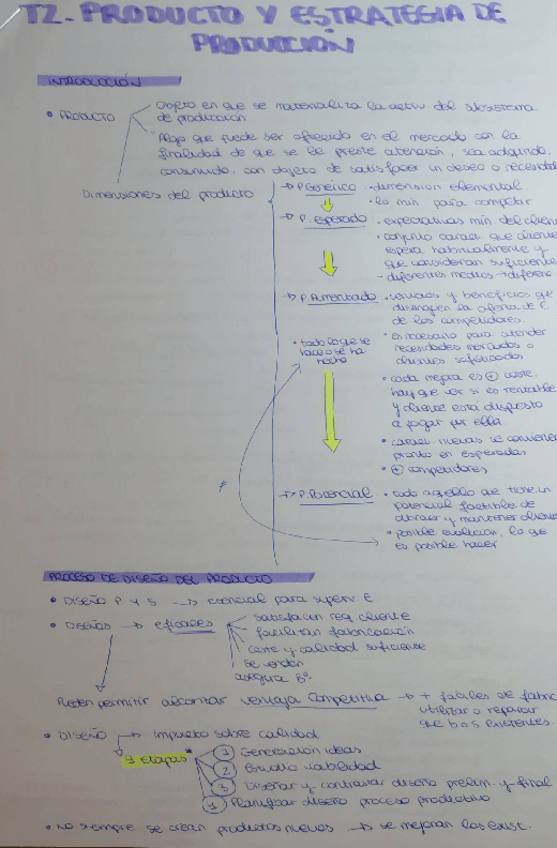 T2. PRODUCTO Y ESTRATEGIA DE
PRODUCCIÓN
INTRODUCCIÓN
• PRODUCTO
Objeto en que se materializa la activ del subsistema
de producción
Algo que puede ser ofrecido en el mercado con la
finalidad de que se le preste atención, sea adquirido,
consumido, con objeto de satisfacer un deseo o necesidad
Dimensiones del producto
→ P. Genérico
• dimensión elemental
• lo mín para competir
→ P. esperado
• expectativas mín del cliente
• conjunto caract que cliente
espera habitualmente y
que consideran suficiente
- diferentes medios → diferenc
→ P. Aumentado
• servicios y beneficios que
distinguen la oferta de E
de los competidores.
• todo lo que se
hace o se ha
hecho
• es necesario para atender
necesidades mercados o
clientes sofisticados
• cada mejora es ⊕ coste.
hay que ver si es rentable
y cliente está dispuesto
a pagar por ella
• caract nuevas se convierten
pronto en esperadas
• ⊕ competidores
→ P. Potencial
• todo aquello que tiene un
potencial factible de
atraer y mantener cliente
• posible evolución, lo que
es posible hacer
PROCESO DE DISEÑO DEL PRODUCTO
• DISEÑO P y S → esencial para superv. E
• DISEÑOS → eficaces
satisfacen req cliente
facilitan fabricación
coste y calidad suficiente
se venden
asegura Bº
Deben permitir alcanzar ventaja competitiva → + fáciles de fabric
utilizar o reparar
que los existentes.
• DISEÑO → impacto sobre calidad
4 etapas
1 Generación ideas
2 Estudio viabilidad
3 Diseñar y contrastar diseño prelim. y final
4 Planificar diseño proceso productivo
• No siempre se crean productos nuevos → se mejoran los exist.